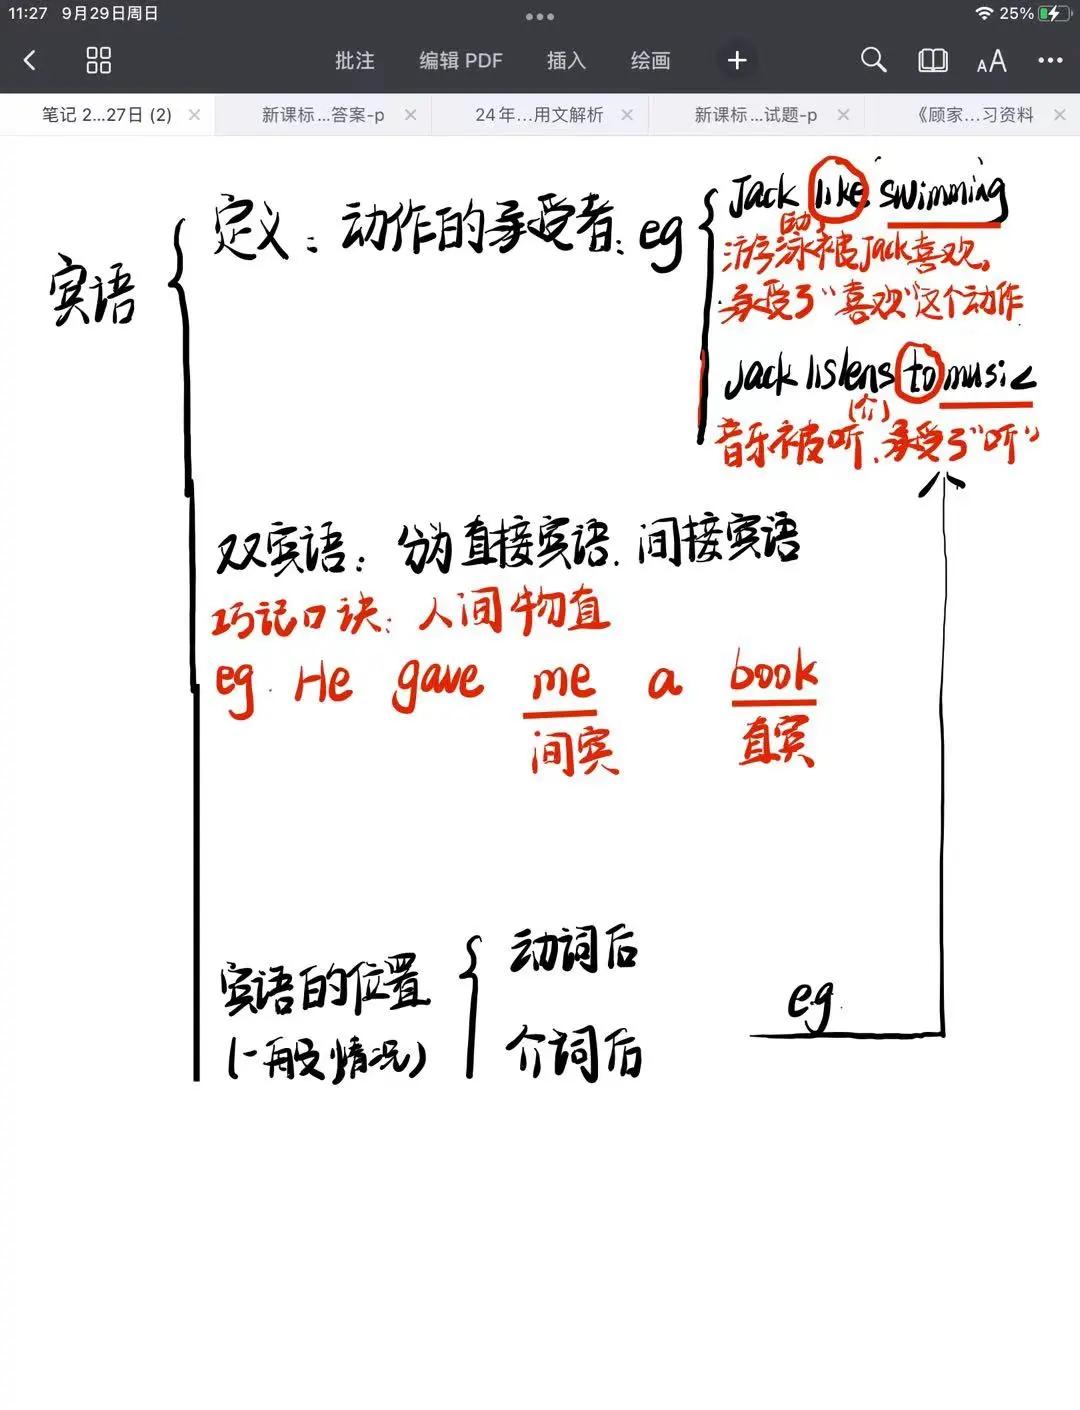 11:27 9月29日周日
25%
批注 编辑 PDF 插入 绘画
AA
笔记 2...27日 (2) 新课标...答案-p 24年...用文解析 新课标...试题-p 《顾家...习资料
宾语
定义：动作的承受者：eg
Jack like swimming
(动)
游泳被Jack喜欢。
承受了“喜欢”这个动作
Jack listens to music
(介)
音乐被听、承受了“听”
双宾语：分为直接宾语、间接宾语
巧记口诀：人间物直
eg. He gave me a book
间宾 直宾
宾语的位置
(一般情况)
动词后
介词后
eg.